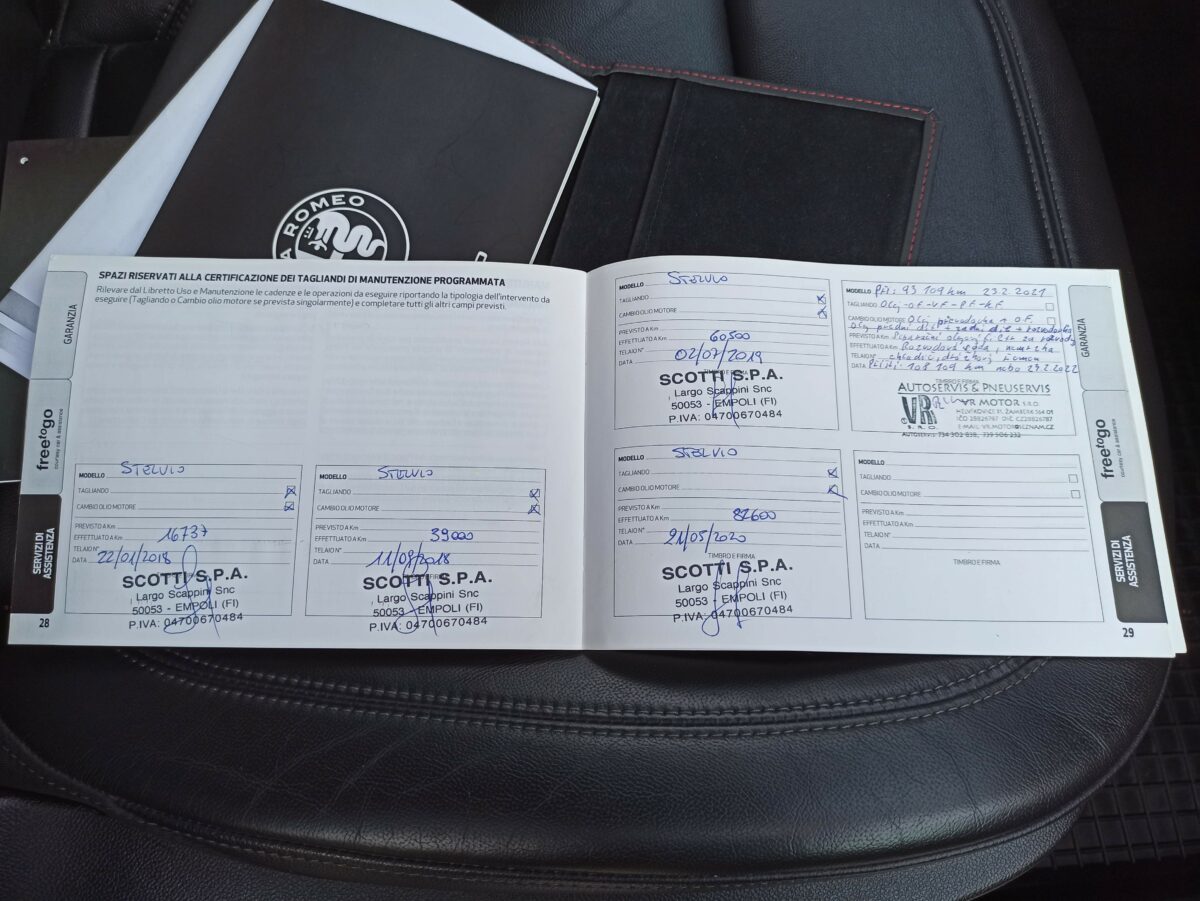 A ROMEO
SPAZI RISERVATI ALLA CERTIFICAZIONE DEI TAGLIANDI DI MANUTENZIONE PROGRAMMATA
Rilevare dal Libretto Uso e Manutenzione le cadenze e le operazioni da eseguire riportando la tipologia dell'intervento da
eseguire (Tagliando o Cambio olio motore se prevista singolarmente) e completare tutti gli altri campi previsti.
GARANZIA
freetogo
courtesy car & assistance
SERVIZI DI
ASSISTENZA
MODELLO STELVIO
TAGLIANDO
CAMBIO OLIO MOTORE
PREVISTO A Km
EFFETTUATO A Km 16737
TELAIO N°
DATA 22/01/2018
SCOTTI S.P.A.
Largo Scappini Snc
50053 - EMPOLI (FI)
P.IVA: 04700670484
28
MODELLO STELVIO
TAGLIANDO
CAMBIO OLIO MOTORE
PREVISTO A Km
EFFETTUATO A Km 39000
TELAIO N°
DATA 11/09/2018
SCOTTI S.P.A.
Largo Scappini Snc
50053 - EMPOLI (FI)
P.IVA: 04700670484
MODELLO STELVIO
TAGLIANDO
CAMBIO OLIO MOTORE
PREVISTO A Km
EFFETTUATO A Km 60500
TELAIO N°
DATA 02/07/2019
TIMBRO E FIRMA
SCOTTI S.P.A.
Largo Scappini Snc
50053 - EMPOLI (FI)
P.IVA: 04700670484
MODELLO Při: 93 109 km 23.2.2021
TAGLIANDO Olej-OF-VF-PF-KF
CAMBIO OLIO MOTORE Olej převodovka + OF
Olej přední dif + zadní dif + rozvodovka
PREVISTO A Km
EFFETTUATO A Km Rozvodová sada
TELAIO N°
DATA Příští: 108 109 km nebo 24.2.2022
TIMBRO E FIRMA
AUTOSERVIS & PNEUSERVIS
VR VR MOTOR S.R.O.
HELVÍKOVICE 81, ŽAMBERK 564 01
S.R.O. E-MAIL: VR.MOTOR@SEZNAM.CZ
AUTOSERVIS 734 302 838, 739 506 232
MODELLO STELVIO
TAGLIANDO
CAMBIO OLIO MOTORE
PREVISTO A Km
EFFETTUATO A Km 82600
TELAIO N°
DATA 21/05/2020
TIMBRO E FIRMA
SCOTTI S.P.A.
Largo Scappini Snc
50053 - EMPOLI (FI)
P.IVA: 04700670484
MODELLO
TAGLIANDO
CAMBIO OLIO MOTORE
PREVISTO A Km
EFFETTUATO A Km
TELAIO N°
DATA
TIMBRO E FIRMA
GARANZIA
freetogo
courtesy car & assistance
SERVIZI DI
ASSISTENZA
29